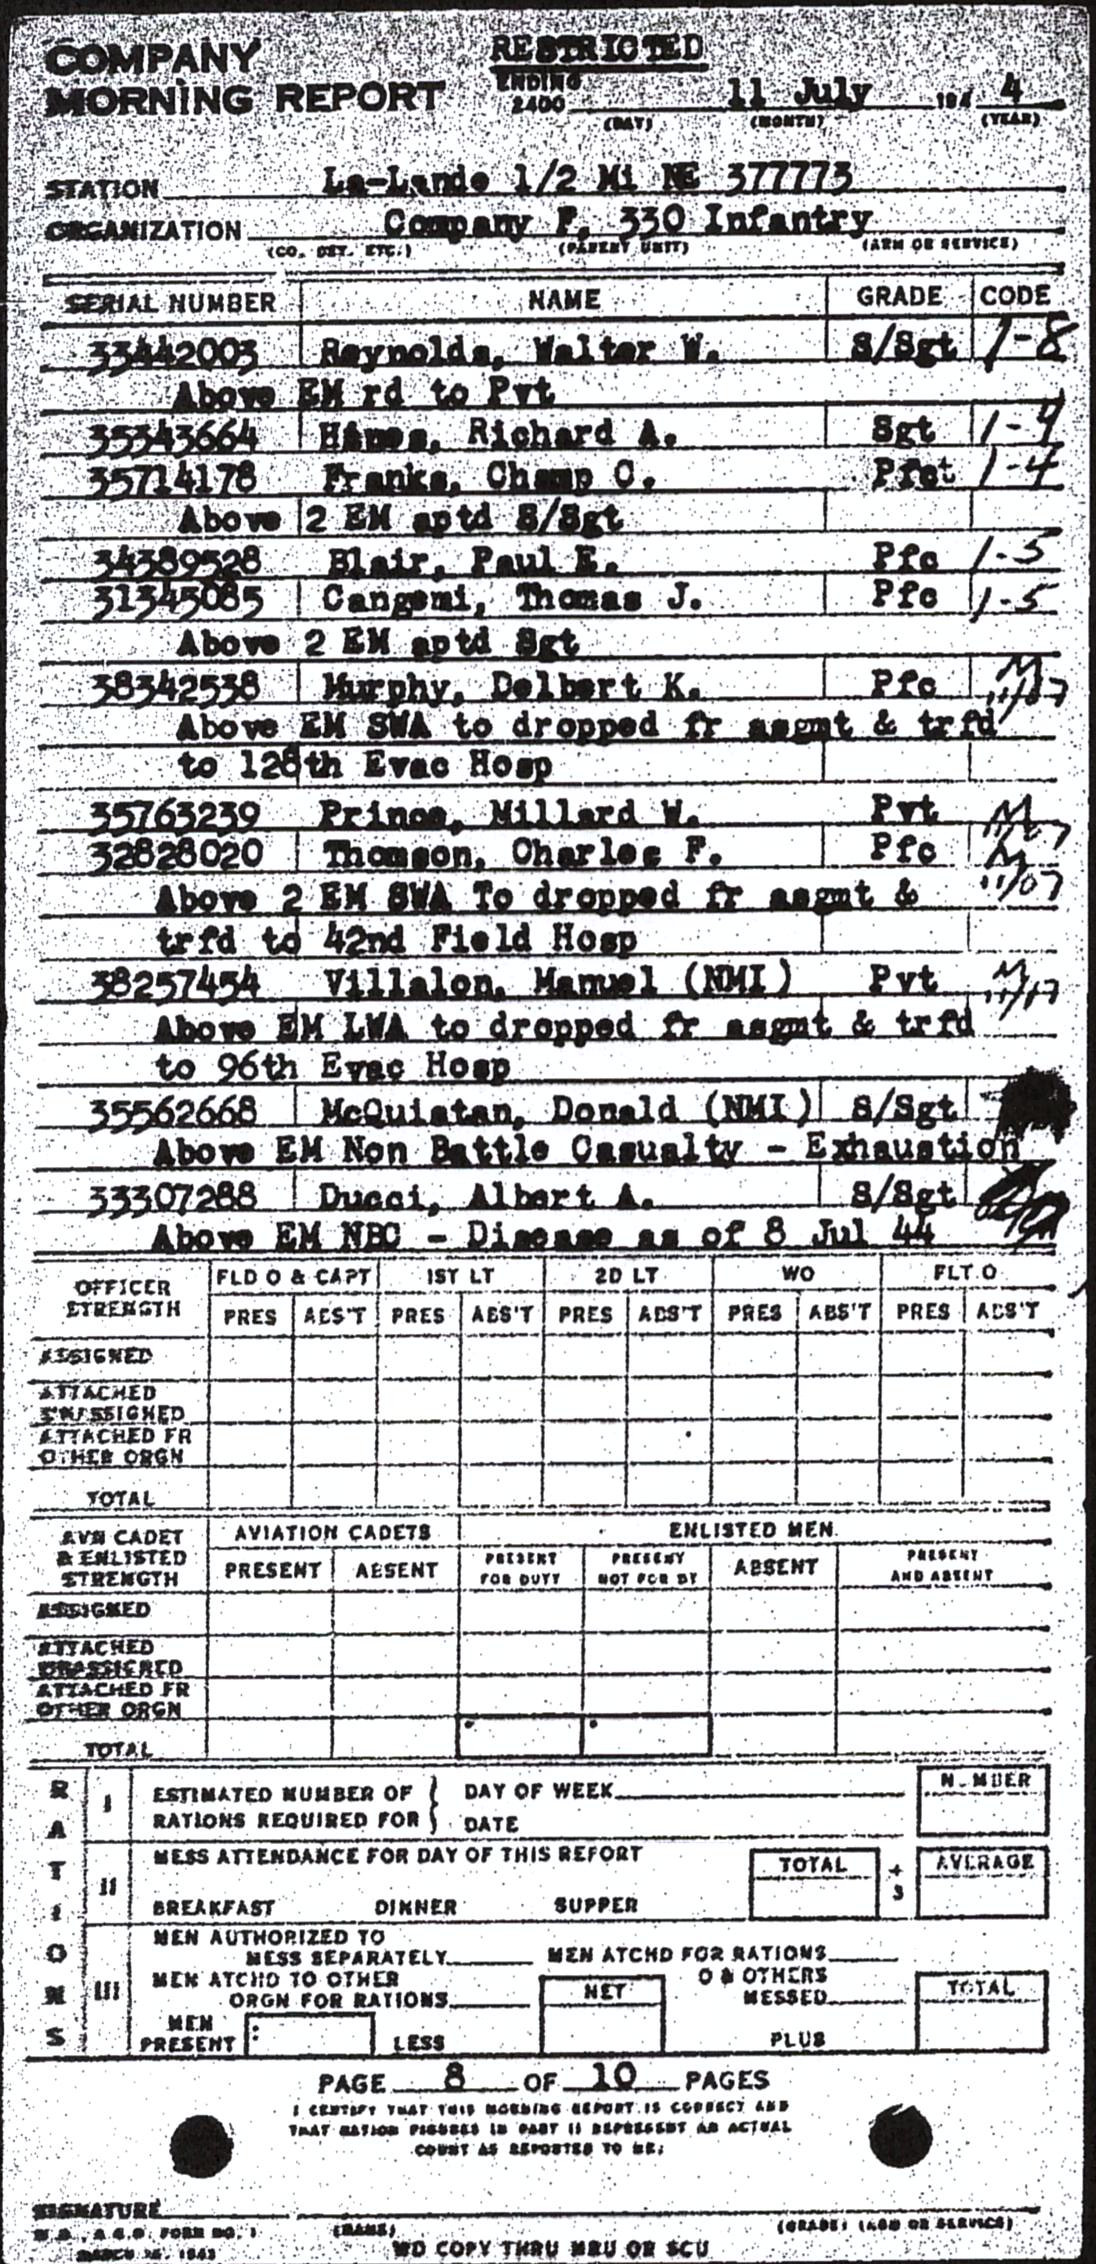 COMPANY
MORNING REPORT
RESTRICTED
ENDING
2400
11 July 194 4
(DAY) (MONTH) (YEAR)
STATION La-Lande 1/2 Mi NE 377773
ORGANIZATION Company F, 330 Infantry
(CO. DET. ETC.) (PARENT UNIT) (ARM OR SERVICE)
SERIAL NUMBER NAME GRADE CODE
33442003 Reynolds, Walter W. S/Sgt 1-8
Above EM rd to Pvt
35343664 Richard A. Sgt 1-4
35714178 Franks, Champ C. 1-4
Above 2 EM aptd S/Sgt
34389528 Blair, Paul E. Pfc 1-5
31345085 Cangemi, Thomas J. Pfc 1-5
Above 2 EM aptd Sgt
38342538 Murphy, Delbert K. Pfc M
Above EM SWA to dropped fr asgmt & trfd
to 128th Evac Hosp
35763239 Prince, Millard W. Pvt M
32828020 Thomson, Charles F. Pfc M
Above 2 EM SWA To dropped fr asgmt &
trfd to 42nd Field Hosp
38257454 Villalon, Manuel (NMI) Pvt M
Above EM LWA to dropped fr asgmt & trfd
to 96th Evac Hosp
35562668 McQuistan, Donald (NMI) S/Sgt
Above EM Non Battle Casualty - Exhaustion
33307288 Ducci, Albert A. S/Sgt
Above EM NBC - Disease as of 8 Jul 44
OFFICER STRENGTH FLD O & CAPT 1ST LT 2D LT WO FLT O
PRES ABS'T PRES ABS'T PRES ABS'T PRES ABS'T PRES ABS'T
ASSIGNED
ATTACHED
UNASSIGNED
ATTACHED FR
OTHER ORGN
TOTAL
AVN CADET & ENLISTED STRENGTH AVIATION CADETS ENLISTED MEN
PRESENT ABSENT PRESENT FOR DUTY PRESENT NOT FOR DY ABSENT PRESENT AND ABSENT
ASSIGNED
ATTACHED
UNASSIGNED
ATTACHED FR
OTHER ORGN
TOTAL
RATIONS
I ESTIMATED NUMBER OF RATIONS REQUIRED FOR DAY OF WEEK NUMBER
DATE
II MESS ATTENDANCE FOR DAY OF THIS REPORT TOTAL ÷ 3 AVERAGE
BREAKFAST DINNER SUPPER
III MEN AUTHORIZED TO
MESS SEPARATELY MEN ATCHD FOR RATIONS
MEN ATCHD TO OTHER
ORGN FOR RATIONS NET O & OTHERS MESSED TOTAL
MEN PRESENT LESS PLUS
PAGE 8 OF 10 PAGES
I CERTIFY THAT THIS MORNING REPORT IS CORRECT AND
THAT RATION FIGURES IN PART II REPRESENT AN ACTUAL
COUNT AS REPORTED TO ME:
SIGNATURE
W.D., A.G.O. FORM NO. 1 (NAME) (GRADE) (ARM OR SERVICE)
MARCH 1943 WD COPY THRU MRU OR SCU